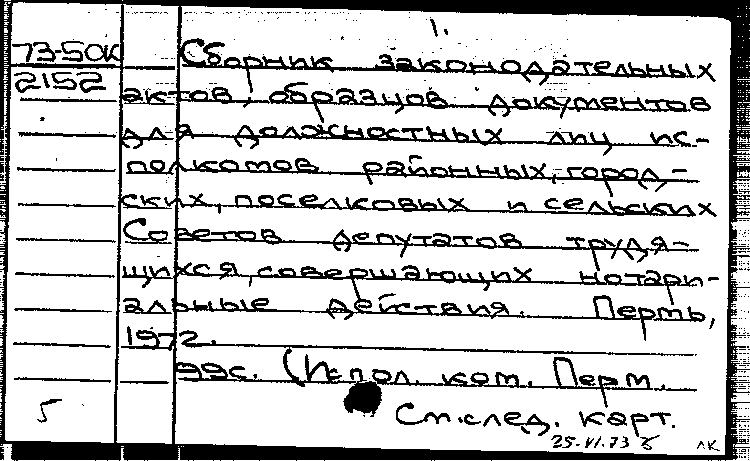 1.
73-50К
2152
Сборник законодательных
актов, образцов документов
для должностных лиц ис-
полкомов районных, город-
ских, поселковых и сельских
Советов депутатов трудя-
щихся, совершающих нотари-
альные действия. Пермь,
1972.
99с. (Испол. ком. Перм.
См.след. карт.
5
25.VI.73
ЛК